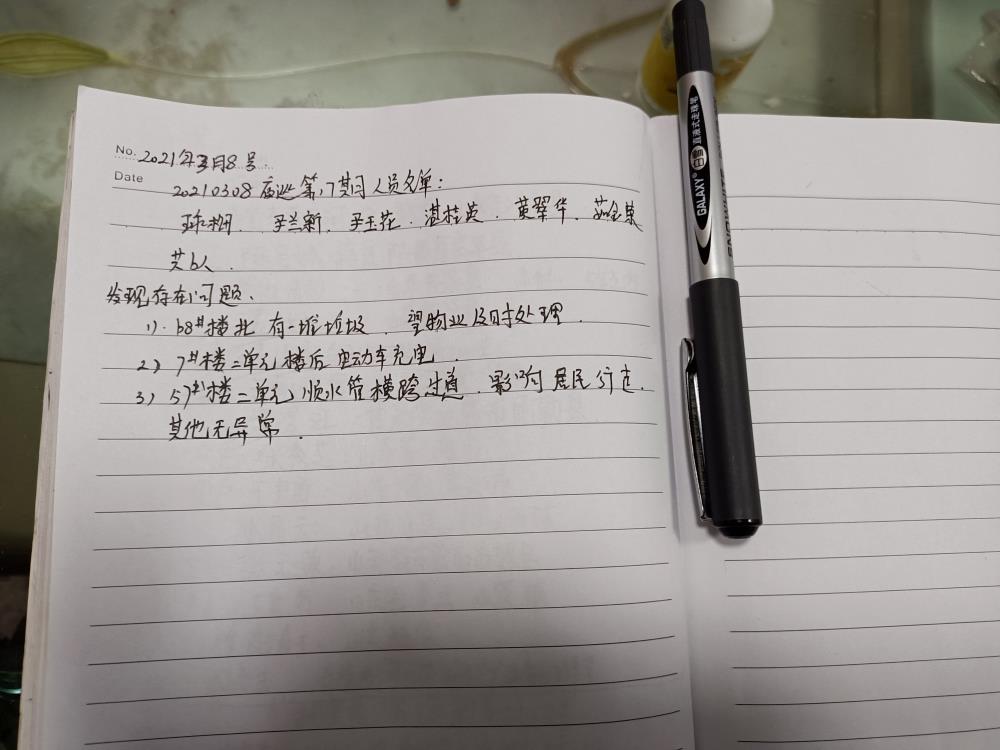 No. 2021年3月8号.
Date
20210308夜巡第17期人员名单:
尹兰新. 尹玉花. 湛桂英. 黄翠华.
共6人.
发现存在问题、
1). 68#楼北 有一堆垃圾. 望物业及时处理.
2) 7#楼二单元楼后 电动车充电.
3) 57#楼二单元 顺水管横跨过道. 影响居民行走.
其他无异常.
GALAXY® 白雪 直液式走珠笔